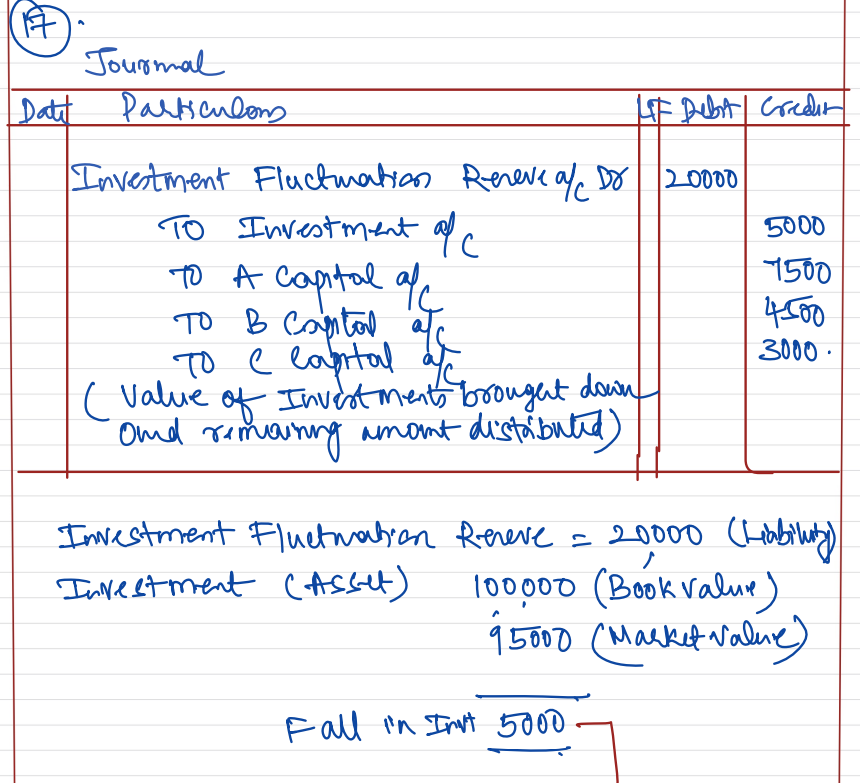 17.
Journal
Date Particulars LF Debit Credit
Investment Fluctuation Reserve a/c Dr 20000
To Investment a/c 5000
To A Capital a/c 7500
To B Capital a/c 4500
To C Capital a/c 3000.
(Value of Investments brought down
and remaining amount distributed)
Investment Fluctuation Reserve = 20000 (Liability)
Investment (Asset) 100,000 (Book value)
95000 (Market Value)
Fall in Invt 5000